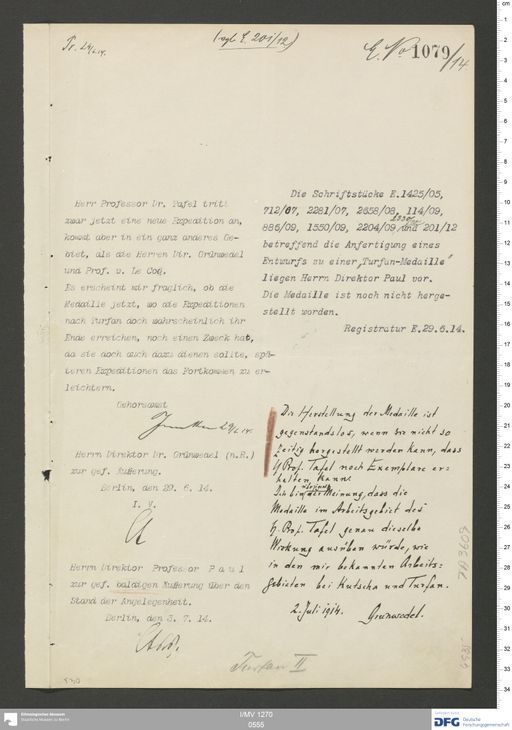 Pr. 29/6.14.
(vgl E. 201/12)
E. No 1079/14
Herr Professor Dr. Tafel tritt
zwar jetzt eine neue Expedition an,
kommt aber in ein ganz anderes Ge-
biet, als die Herren Dir. Grünwedel
und Prof. v. Le Coq.
Es erscheint mir fraglich, ob die
Medaille jetzt, wo die Expeditionen
nach Turfan doch wahrscheinlich ihr
Ende erreichen, noch einen Zweck hat,
da sie doch auch dazu dienen sollte, spä-
teren Expeditionen das Fortkommen zu er-
leichtern.
Gehorsamst
29/6.14.
Herrn Direktor Dr. Grünwedel (n.R.)
zur gef. Äußerung.
Berlin, den 29. 6. 14.
I. V.
Herrn Direktor Professor Paul
zur gef. baldigen Äußerung über den
Stand der Angelegenheit.
Berlin, den 3. 7. 14.
Die Schriftstücke E.1425/05,
712/07, 2281/07, 2658/08, 114/09,
886/09, 1550/09, 2204/09, und 201/12
betreffend die Anfertigung eines
Entwurfs zu einer „Turfan-Medaille"
liegen Herrn Direktor Paul vor.
Die Medaille ist noch nicht herge-
stellt worden.
Registratur E.29.6.14.
Die Herstellung der Medaille ist
gegenstandslos, wenn sie nicht so
zeitig hergestellt werden kann, dass
H. Prof. Tafel noch Exemplare er-
halten kann.
Ich bin der Meinung, dass die
Medaille im Arbeitsgebiet des
H. Prof. Tafel genau dieselbe
Wirkung ausüben würde, wie
in den mir bekannten Arbeits=
gebieten bei Kutscha und Turfan.
2. Juli 1914. Grünwedel.
Turfan II
Ethnologisches Museum
Staatliche Museen zu Berlin
I/MV 1270
0555
DFG Deutsche
Forschungsgemeinschaft